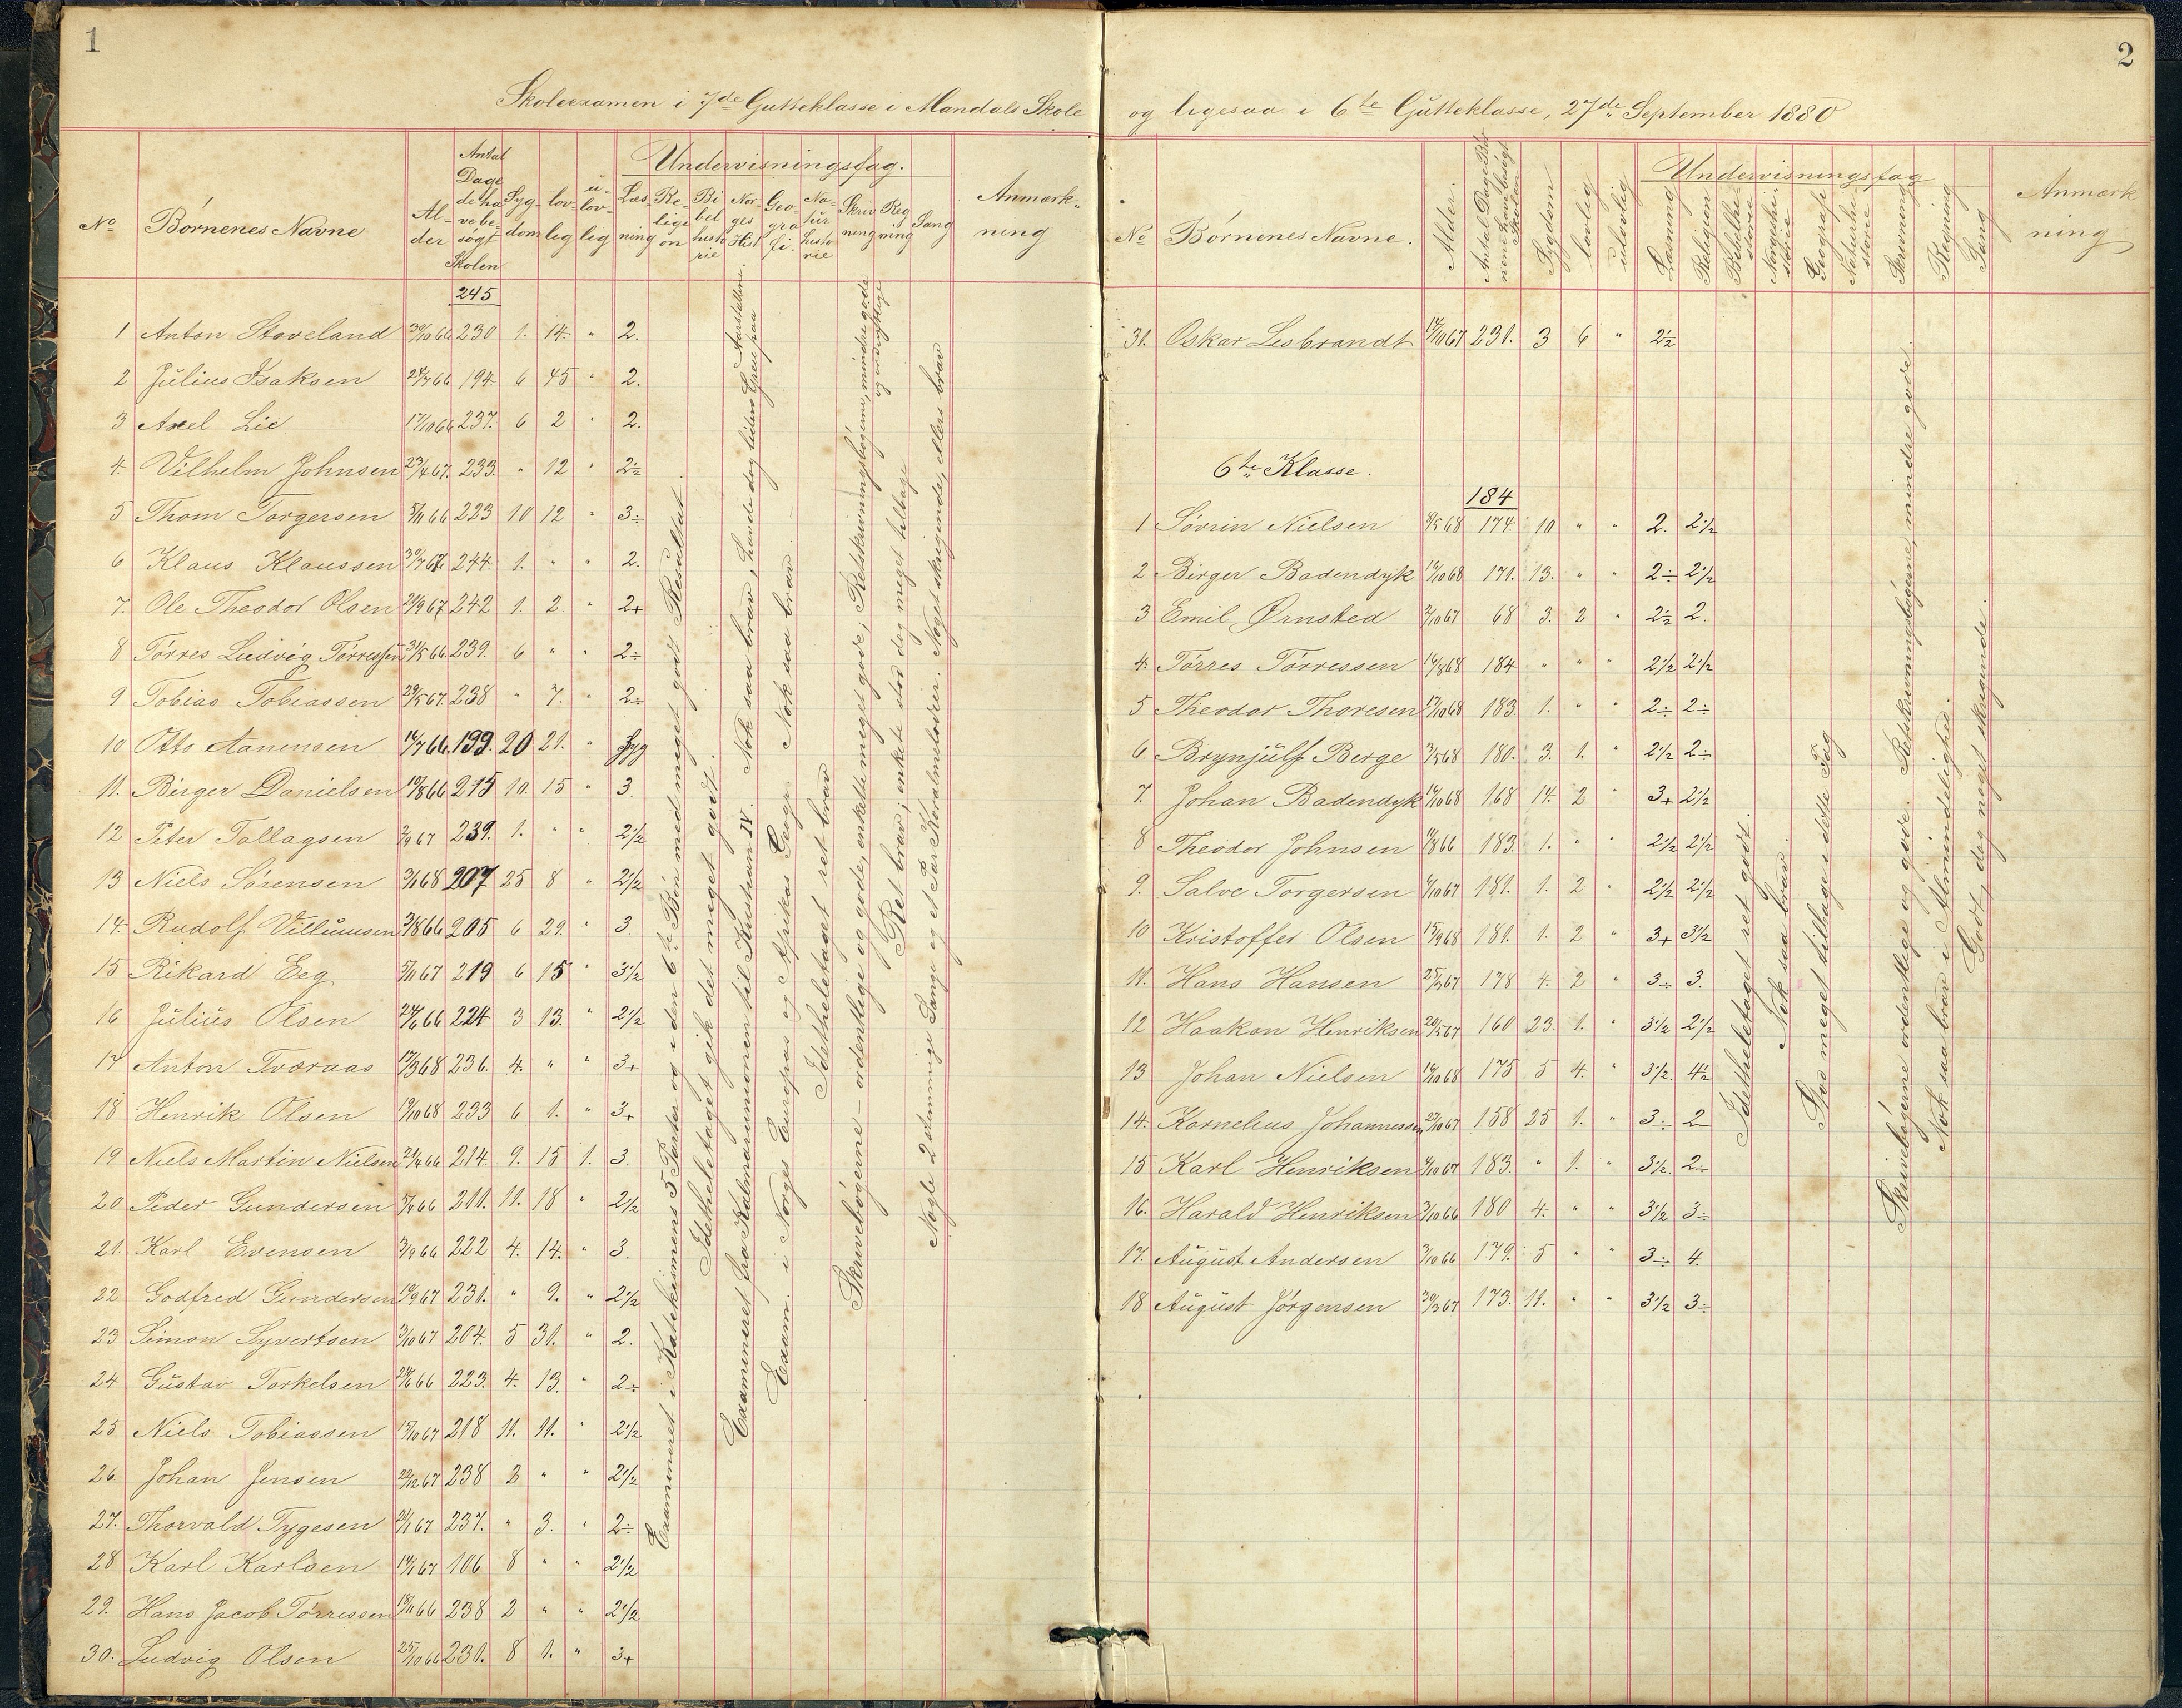 1
Skoleexamen i 7de Gutteklasse i Mandals Skole
No Børnenes Navne Alder Antal Dage de have besøgt Skolen Sygdom lovlig ulovlig Undervisningsfag. Anmærkning
Læsning Religion Bibelhistorie Norges Hist. Geografi. Naturhistorie Skrivning Regning Sang
245
1 Anton Stoveland 30/10 66 230 1. 14. " 2.
2 Julius Isaksen 24/7 66 194. 6 45 " 2.
3 Axel Lie 17/10 66 237. 6 2 " 2.
4. Vilhelm Johnsen 23/4 67. 233. " 12 " 2½
5 Thom Torgersen 5/11 66 223 10 12 " 3÷
6 Klaus Klaussen 30/7 67 244. 1. " " 2.
7. Ole Theodor Olsen 21/9 67 242 1. 2. " 2+
8 Tørres Ludvig Tørressen 31/5 66. 239. 6 " " 2÷
9 Tobias Tobiassen 29/5 67. 238 " 7. " 2÷
10 Otto Aanensen 16/7 66. 199. 20 21. " Syg
11. Birger Danielsen 19/8 66 215 10. 15 " 3.
12 Peter Tallagsen 2/9 67 239. 1. " " 2½
13 Niels Sørensen 3/1 68 207 25 8 " 2½
14. Rudolf Villumsen 3/8 66 205 6 29. " 3.
15 Rikard Eeg 5/11 67 219 6 15 " 3½
16 Julius Olsen 24/6 66 224 3 13. " 2½
17 Anton Tværaas 17/3 68 236. 4. " " 3+
18 Henrik Olsen 19/10 68 233 6 1. " 3+
19 Niels Martin Nielsen 21/4 66 214. 9. 15 1. 3.
20 Peder Gundersen 5/4 66 211. 11. 18 " 2½
21. Karl Evensen 3/9 66 222 4. 14. " 3.
22 Godfred Gundersen 19/9 67 231. " 9. " 2½
23 Simon Syvertsen 3/10 67 204. 5 31. " 2.
24 Gustav Torkelsen 24/6 66 223. 4. 13. " 2÷
25 Niels Tobiassen 15/10 67 218 11. 11. " 2½
26 Johan Jensen 22/12 67 238 3 " " 2½
27. Thorvald Tygesen 21/1 67 237. " 3. " 2÷
28 Karl Karlsen 14/1 67 106 8 " " 2½
29. Hans Jacob Tørressen 18/11 66 238 2 " " 2½
30. Ludvig Olsen 25/10 66 231. 8 1. " 3+
Examineret i Katekismens 5 Parter og i den 6te Bøn med meget godt Resultat.
Idetheletaget gik det meget godt.
Examineret fra Kalmarunionen til Kristian IV. Nok saa brav, havde dog liden Greie paa Aarstallene.
Exam. i Norges Europas og Afrikas Geogr. Nok saa brav.
Idetheletaget ret brav
Skrivebøgerne – ordentlige og gode, enkelte meget gode; Retskrivningsbøgerne, mindre gode og orgentlige
Ret brav; enkete stod dog meget tilbage
Nogle 2 stemmige Sange og et Par Koralmelodier. Noget skrigende, ellers brav
2
og ligesaa i 6te Gutteklasse, 27de September 1880
No Børnenes Navne. Alder. Antal Dage Børnene have besøgt Skolen Sygdom lovlig ulovlig Undervisningsfag Anmærkning
Læsning Religion Bibelhistorie Norgeshistorie Geografi Naturhistorie Skrivning Regning Sang
31. Oskar Lesbrandt 17/10 67 231. 3 6 " 2½
6te Klasse.
184
1 Sövrin Nielsen 8/5 68 174. 10 " " 2. 2½
2 Birger Badendyk 14/10 68 171. 13. " " 2÷ 2½
3 Emil Ørnsted 2/10 67 68 3. 2 " 2½ 2.
4. Tørres Tørressen 14/8 68 184 " " " 2½ 2½
5 Theodor Thoresen 17/10 68 183. 1. " " 2÷ 2÷
6 Brynjulf Berge 3/5 68 180. 3. 1. " 2½ 2÷
7. Johan Badendyk 14/10 68 168 14. 2 " 3+ 2½
8 Theodor Johnsen 11/8 66 183. 1. " " 2½ 2½
9. Salve Torgersen 4/10 67 181. 1. 2 " 2½ 2½
10 Kristoffer Olsen 15/9 68 181. 1. 2 " 3+ 3½
11. Hans Hansen 25/3 67 178 4. 2 " 3÷ 3.
12 Haakon Henriksen 20/5 67 160 23. 1. " 3½ 2½
13 Johan Nielsen 14/10 68 175 5 4. " 3½. 4½
14. Kornelius Johannessen 27/10 67 158 25 1. " 3÷ 2
15 Karl Henriksen 4/10 67 183. " 1. " 3½. 2÷
16. Harald Henriksen 3/10 66 180 4. " " 3½ 3÷
17. August Andersen 3/10 66 179. 5 " " 3÷ 4.
18 August Jørgensen 30/3 67 173. 11. " " 3½ 3÷
Idetheletaget ret godt.
Nok saa brav.
Stod meget tilbage i dette Fag
Skrivebøgerne ordentlige og gode. Retskrivningbøgerne, mindre gode.
Nok saa brav i Almindelighed.
Godt, dog noget skrigende.